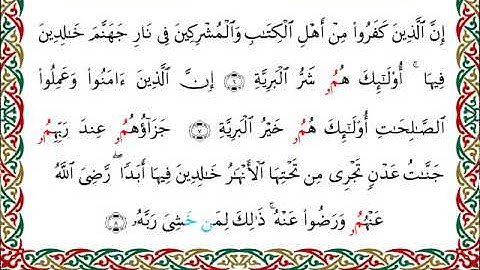 إِنَّ ٱلَّذِينَ كَفَرُوا۟ مِنْ أَهْلِ ٱلْكِتَـٰبِ وَٱلْمُشْرِكِينَ فِى نَارِ جَهَنَّمَ خَـٰلِدِينَ
فِيهَا ۚ أُو۟لَـٰٓئِكَ هُمُۥ شَرُّ ٱلْبَرِيَّةِ ۝٦ إِنَّ ٱلَّذِينَ ءَامَنُوا۟ وَعَمِلُوا۟
ٱلصَّـٰلِحَـٰتِ أُو۟لَـٰٓئِكَ هُمُۥ خَيْرُ ٱلْبَرِيَّةِ ۝٧ جَزَآؤُهُمُۥ عِندَ رَبِّهِمُۥ
جَنَّـٰتُ عَدْنٍ تَجْرِى مِن تَحْتِهَا ٱلْأَنْهَـٰرُ خَـٰلِدِينَ فِيهَآ أَبَدًا ۖ رَّضِىَ ٱللَّهُ
عَنْهُمُۥ وَرَضُوا۟ عَنْهُ ۚ ذَٰلِكَ لِمَنْ خَشِىَ رَبَّهُۥ ۝٨